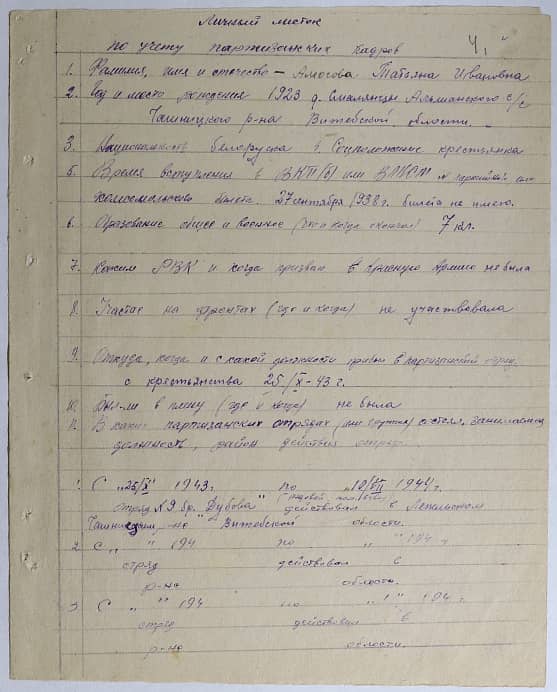 Личный листок
по учету партизанских кадров
1. Фамилия, имя и отчество – Амосова Татьяна Ивановна
2. Год и место рождения 1923 д. Смоляницы с/с
Чашницкого р-на Витебской области.
3. Национальность белоруска 4. Соцположение крестьянка
5. Время вступления в ВКП(б) или ВЛКСМ № партийного или
комсомольского билета. 27 сентября 1938 г. билета не имею.
6. Образование общее и военное (что и когда окончил) 7 кл.
7. Каким РВК и когда призван в Красную Армию не была
8. Участие на фронтах (где и когда) не участвовала
9. Откуда, когда и с какой должности прибыл в партизанский отряд
с крестьянства 25/X-43 г.
10. Был-ли в плену (где и когда) не была
11. В каких партизанских отрядах состоял, занимаемая
должность, район действия отряда
1. С "25/X" 1943 г. по 1944 г.
отряд №9 бр. "Дубова" действовал в Лепельском
Чашницком р-не Витебской области.
2. С " " 194 по " " 194 г.
отряд действовал в
р-не области.
3 С " " 194 по " " 194 г.
отряд действовал в
р-не области.